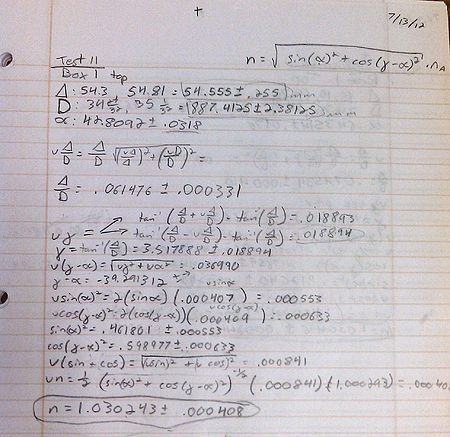 7/13/12
Test 11
Box 1 top
n = √(sin(α)² + cos(γ-α)²) · n_A
Δ: 54.3, 54.81 = 54.555 ± .255 mm
D: 34 , 35 = 887.4125 ± 2.38125 mm
α: 42.8092 ± .0318
υ Δ/D = Δ/D √((υΔ/Δ)² + (υD/D)²) =
Δ/D = .061476 ± .000331
υγ = tan⁻¹(Δ/D + υΔ/D) - tan⁻¹(Δ/D) = .018893
tan⁻¹(Δ/D - υΔ/D) - tan⁻¹(Δ/D) = .018894
γ = tan⁻¹(Δ/D) = 3.517888 ± .018894
υ(γ-α) = √(υγ² + υα²) = .036990
γ-α = -39.291312
υsinα
υsin(α)² = 2(sinα)(.000407) = .000553
υcos(γ-α)
υcos(γ-α)² = 2(cos(γ-α))(.000409) = .000633
sin(α)² = .461801 ± .000553
cos(γ-α)² = .598977 ± .000633
υ(sin + cos) = = .000841
υn = ½ (sin(α)² + cos(γ-α)²)^-½ (.000841)(1.000293) = .00040
n = 1.030243 ± .000408